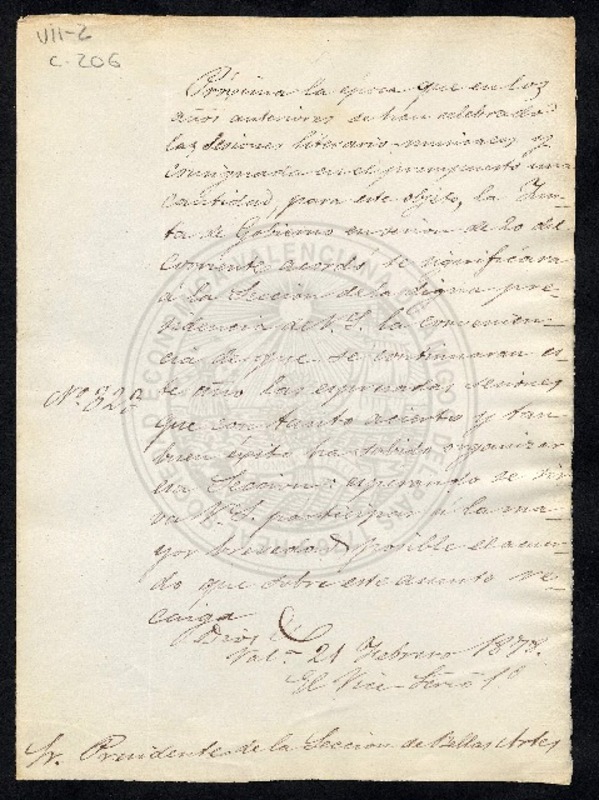 VII-2
C-206
Próxima la época que en los
años anteriores se han celebrado
las sesiones literario-musicales y
consignada en el presupuesto una
cantidad, para este objeto, la Jun-
ta de Gobierno en sesion de 20 del
corriente acordó se significára
á la Seccion de la digna pre-
sidencia de V. S. la convenien-
cia de que se continuaran es-
te año las espresadas sesiones
que con tanto acierto y tan
buen éxito ha sabido organizar
esa Seccion: esperando se sir-
va V. S. participar á la ma-
yor brevedad posible el acuer-
do que sobre este asunto re-
caiga
Nº 322
Dios &
Val.ª 21 Febrero 1878.
El Vice-Srio 1º
Sr. Presidente de la Seccion de Bellas Artes
REAL SOCIEDAD ECONOMICA VALENCIANA DE AMIGOS DEL PAIS